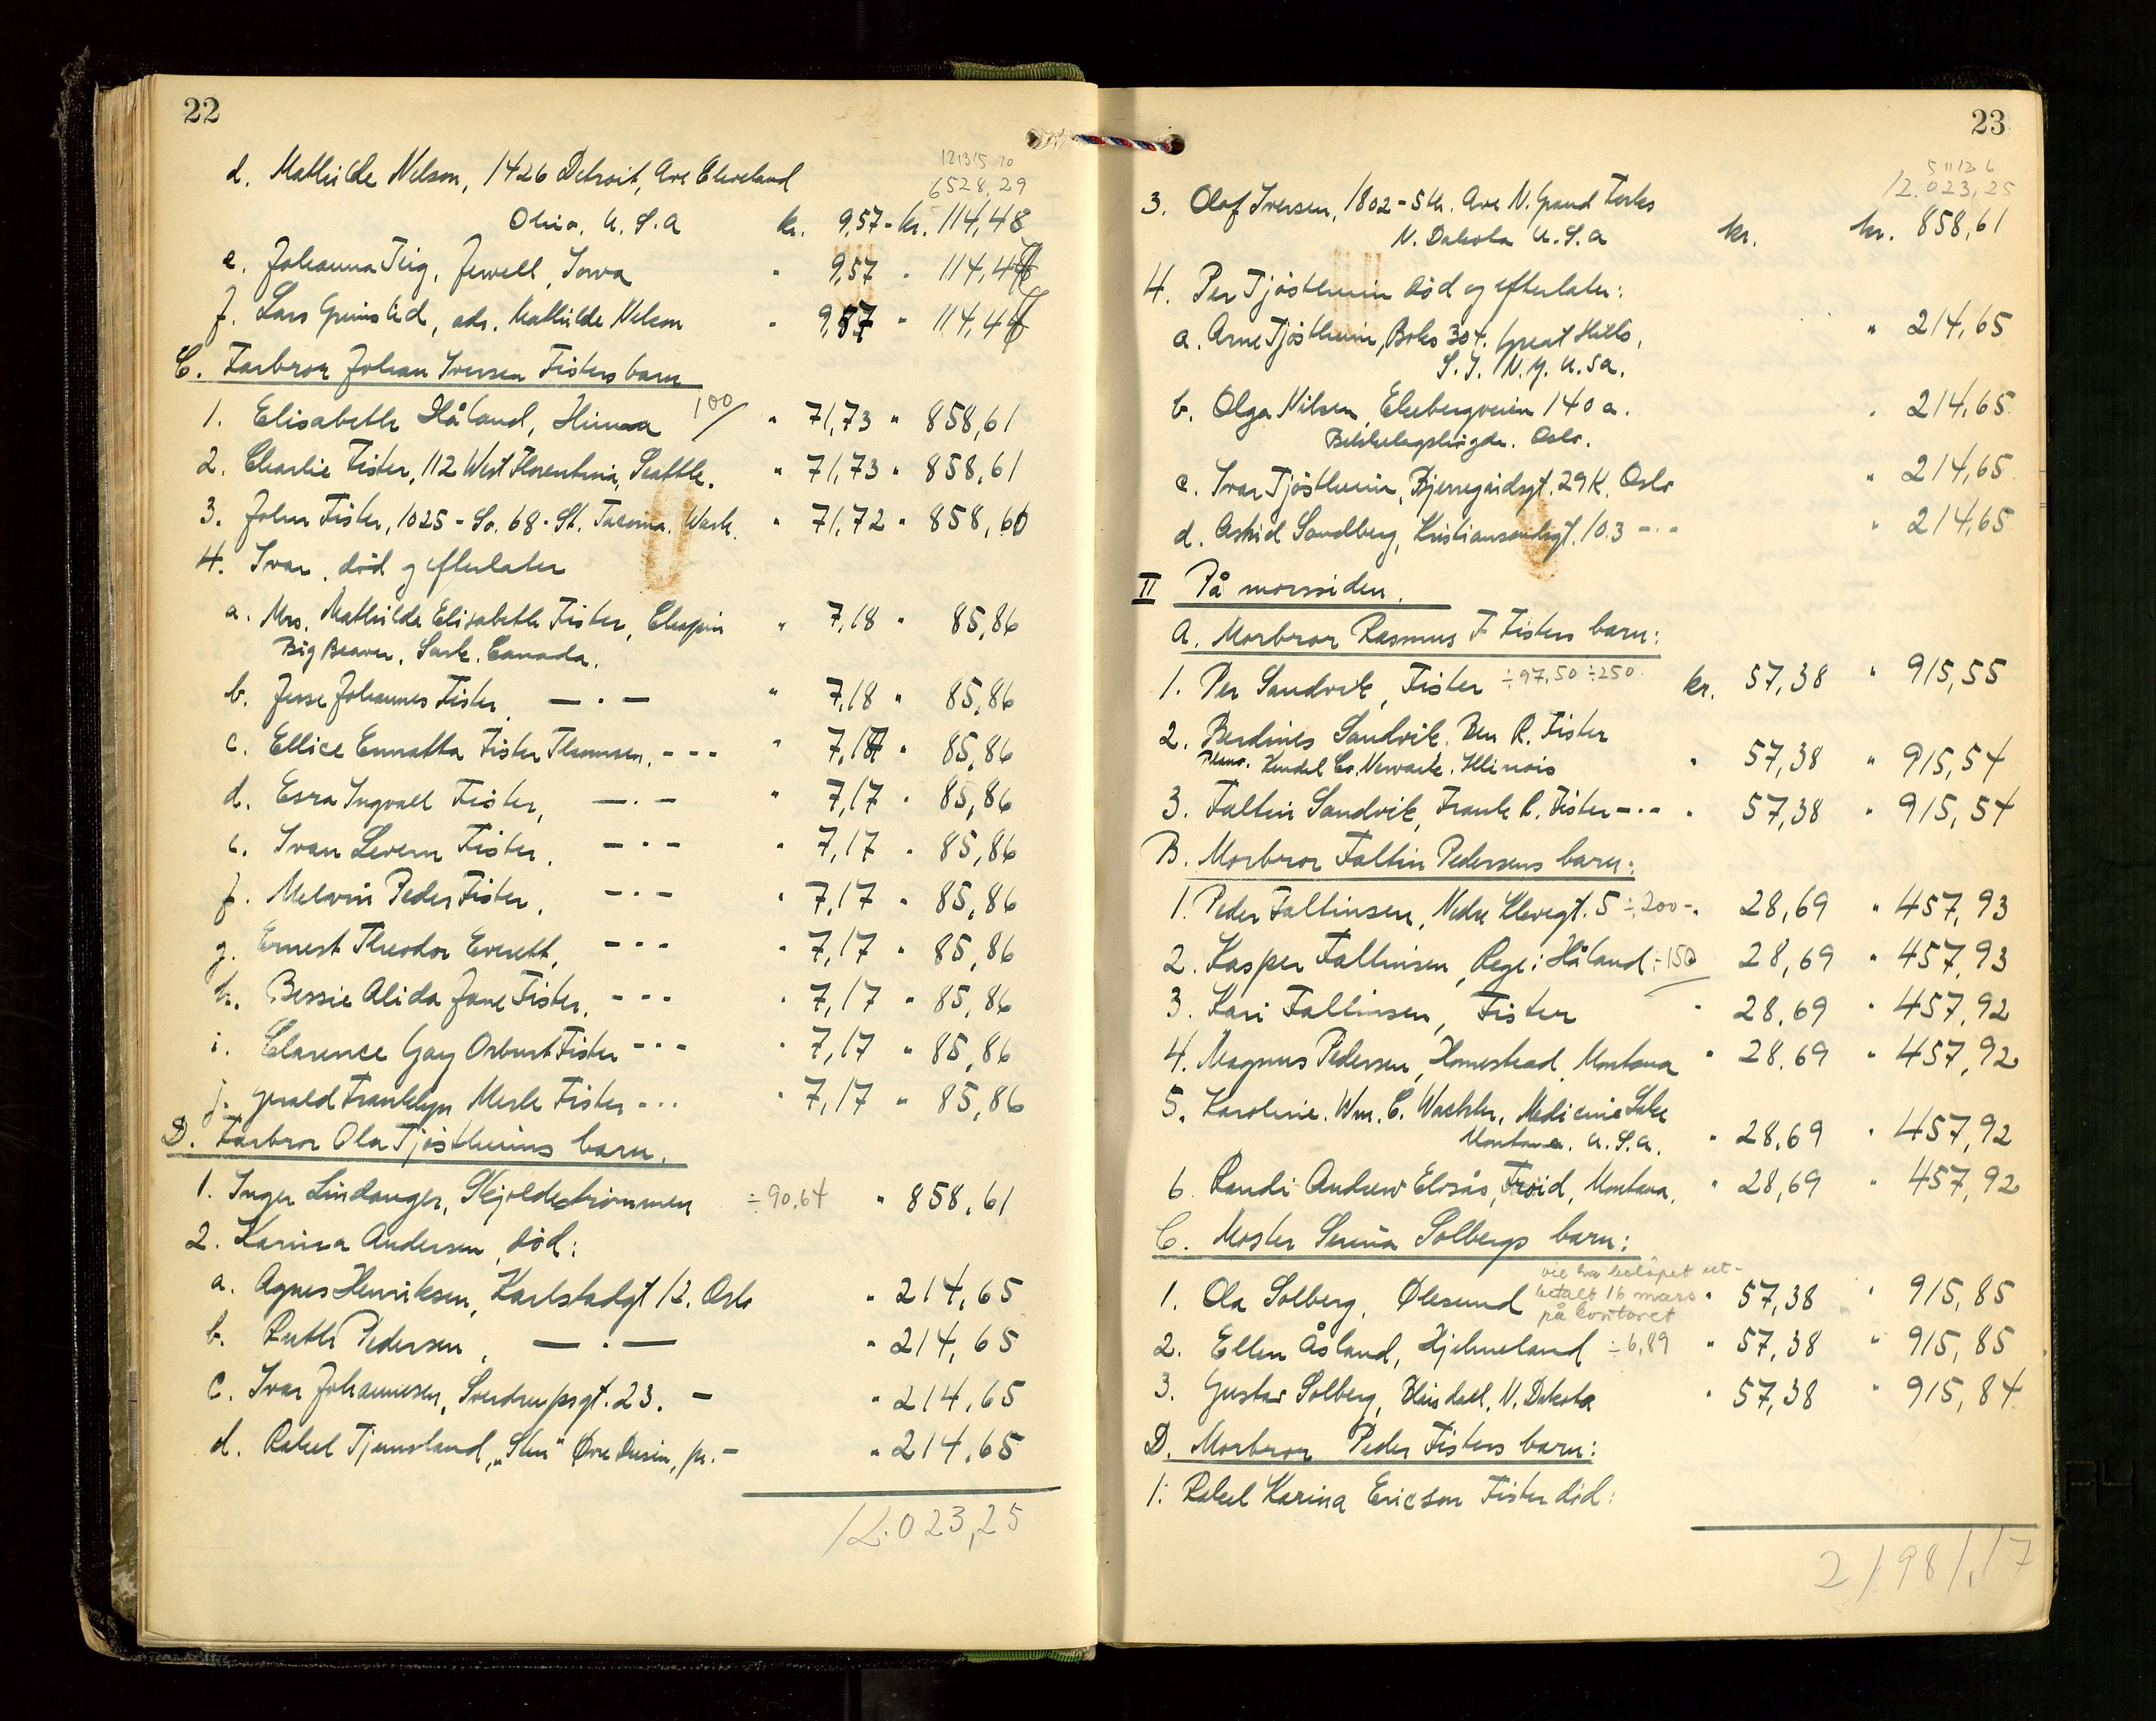 22
121315 10
6528,29
d. Mathilde Nelson, 1426 Detroit, Ave Cleveland
Ohio. U. S. A kr. 9,57 - kr. 114,48
e. Johanna Teig, Jewell, Iowa " 9,57 " 114,48
f. Lars Grimslid, adr. Mathilde Nelson " 9,57 " 114,47
C. Farbror Johan Iversen Fisters barn
1. Elisabeth Håland, Hinna 100/ " 71,73 " 858,61
2. Charlie Fister, 112 West Florentina, Seattle. " 71,73 " 858,61
3. John Fister, 1025 - So. 68 - St. Tacoma. Wash. " 71,72 " 858,60
4. Ivar, död og efterlater
a. Mrs. Mathilda Elisabeth Fister, Chapin " 7,18 " 85,86
Big Beaver, Sask. Canada.
b. Jesse Johannes Fister, — " — " 7,18 " 85,86
c. Ellice Ennatta Fister Thomsen, - " - " 7,17 " 85,86
d. Esra Ingvall Fister, — " — " 7,17 " 85,86
e. Ivan Levern Fister, - " - " 7,17 " 85,86
f. Melvin Peder Fister, - " - " 7,17 " 85,86
g. Ernest Theodor Everett, - " - " 7,17 " 85,86
h. Bessie Alida Jane Fister, - " - " 7,17 " 85,86
i. Clarence Gay Orburt Fister - " - " 7,17 " 85,86
j. Gerald Franklyn Merle Fister - " - " 7,17 " 85,86
D. Farbror Ola Tjöstheims barn.
1. Inger Lindanger, Skjoldestrømmen ÷ 90,64 " 858,61
2. Karina Andersen, död:
a. Agnes Henriksen, Karlstadgt 12. Oslo " 214,65
b. Ruth Pedersen, — " — " 214,65
c. Ivar Johannesen, Sverdrupsgt. 23. — " 214,65
d. Rakel Tjemsland, "Sten" Øvre pr. - " 214,65
12.023,25
23
5 11 12 6
12.023,25
3. Olaf Iversen, 1802 - 5th. Ave N. Grand Forks
N. Dakota U. S. A kr. kr. 858,61
4. Per Tjöstheim död og efterlater:
a. Arne Tjöstheim, Boks 304. Great Kills, " 214,65
S. I. N. Y. U.S.A.
b. Olga Nilsen, Ekebergveien 140 a. " 214,65
Bekkelagshögda. Oslo.
c. Ivar Tjöstheim, Bjerregårdsgt. 29 K. Oslo " 214,65
d. Astrid Sandberg, Kristiansandsgt. 10.3 - " - " 214,65
II På morssiden.
A. Morbror Rasmus F Fisters barn:
1. Per Sandvik, Fister ÷97,50 ÷250 kr. 57,38 " 915,55
2. Berdines Sandvik, Ben R. Fister
Kendel Co. Newark. Illinois " 57,38 " 915,54
3. Faltin Sandvik, Frank R. Fister - " - " 57,38 " 915,54
B. Morbror Faltin Pedersens barn:
1. Peder Faltinsen, Nedre Klevegt. 5 ÷ 200 - " 28,69 " 457,93
2. Kasper Faltinsen, Rege i Håland ÷ 150 28,69 " 457,93
3. Kari Faltinsen, Fister " 28,69 " 457,92
4. Magnus Pedersen, Homestead, Montana " 28,69 " 457,92
5. Karoline. Wm. C. Wachter, Medicine Lake
Montana. U. S. A. " 28,69 " 457,92
6. Randi Andrew Elvsås, Froid, Montana, " 28,69 " 457,92
C. Moster Serina Solbergs barn:
vil ha beløpet ut-
1. Ola Solberg, Ølesund betalt 16 mars " 57,38 " 915,85
på kontoret
2. Ellen Åsland, Hjelmeland ÷ 6,89 " 57,38 " 915,85
3. Gustav Solberg, N. Dakota " 57,38 " 915,84
D. Morbror Peder Fisters barn:
1. Rakel Karina Ericson Fister död:
21981,17